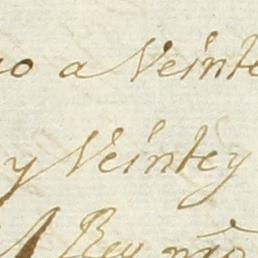 a Veinte
y Veintey
Rey nrõ